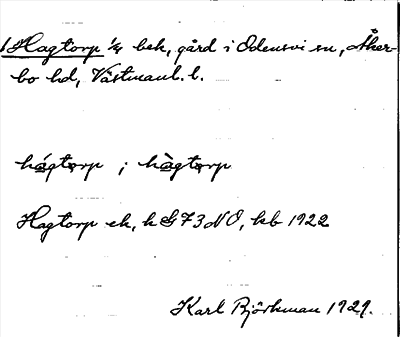 1 Hagtorp 1/4 bek, gård i Odensvi sn, Åker-
bo hd, Västmanl. l.
hágtorp ; hàgtorp
Hagtorp ek, k G73NO, kb 1922
Karl Björkman 1929.